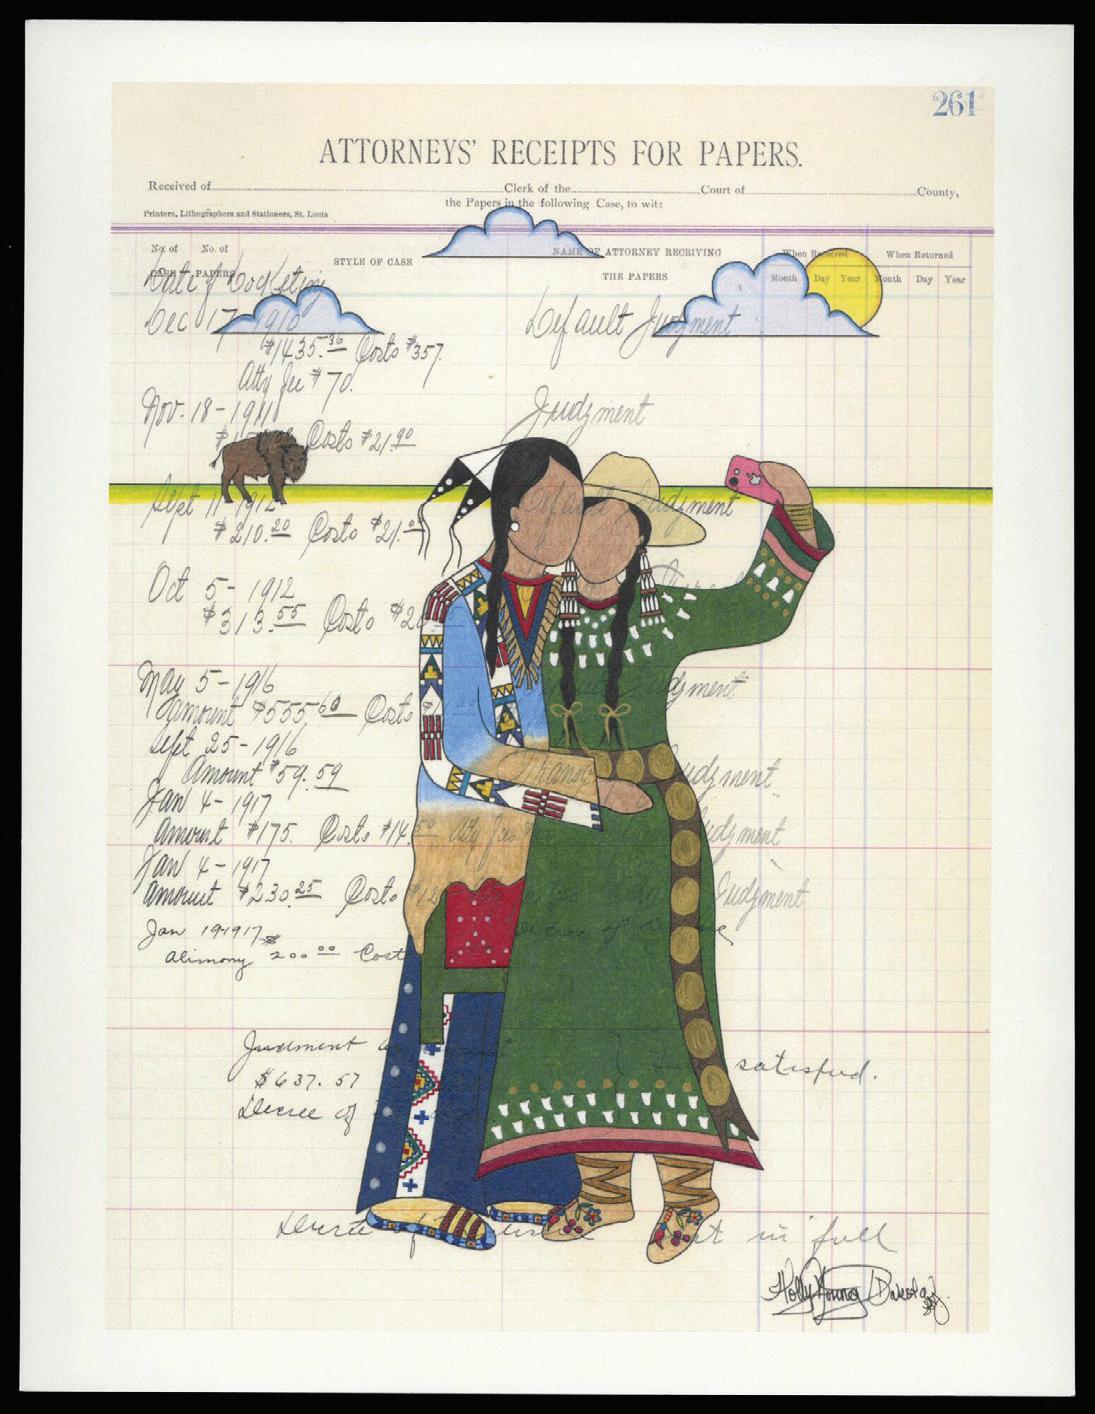 261
ATTORNEYS' RECEIPTS FOR PAPERS.
Received of Clerk of the Court of County,
the Papers in the following Case, to wit:
Printers, Lithographers and Stationers, St. Louis
No. of No. of STYLE OF CASE NAME OF ATTORNEY RECEIVING When Received When Returned
CASE PAPERS THE PAPERS Month Day Year Month Day Year
Date of Docketing
Dec 17 1910 Default Judgment
$1435.36 Costs $357
Atty fee $70.
Nov. 18-1911 Judgment
Costs $21.90
Sept 11-1912 Default Judgment
$210.20 Costs $21.
Oct 5-1912
$313.55 Costs $2
May 5-1916 Judgment
Amount $555.60 Costs
Sept 25-1916
Amount $59.59 Judgment
Jan 4-1917
Amount $175. Costs $14.50 Atty fee Judgment
Jan 4-1917
Amount $230.25 Costs Judgment
Jan 19-1917
alimony $200.00 Cost
Judgment satisfied.
$637.57
Decree of
Decree of in full
Holly Young Dakota